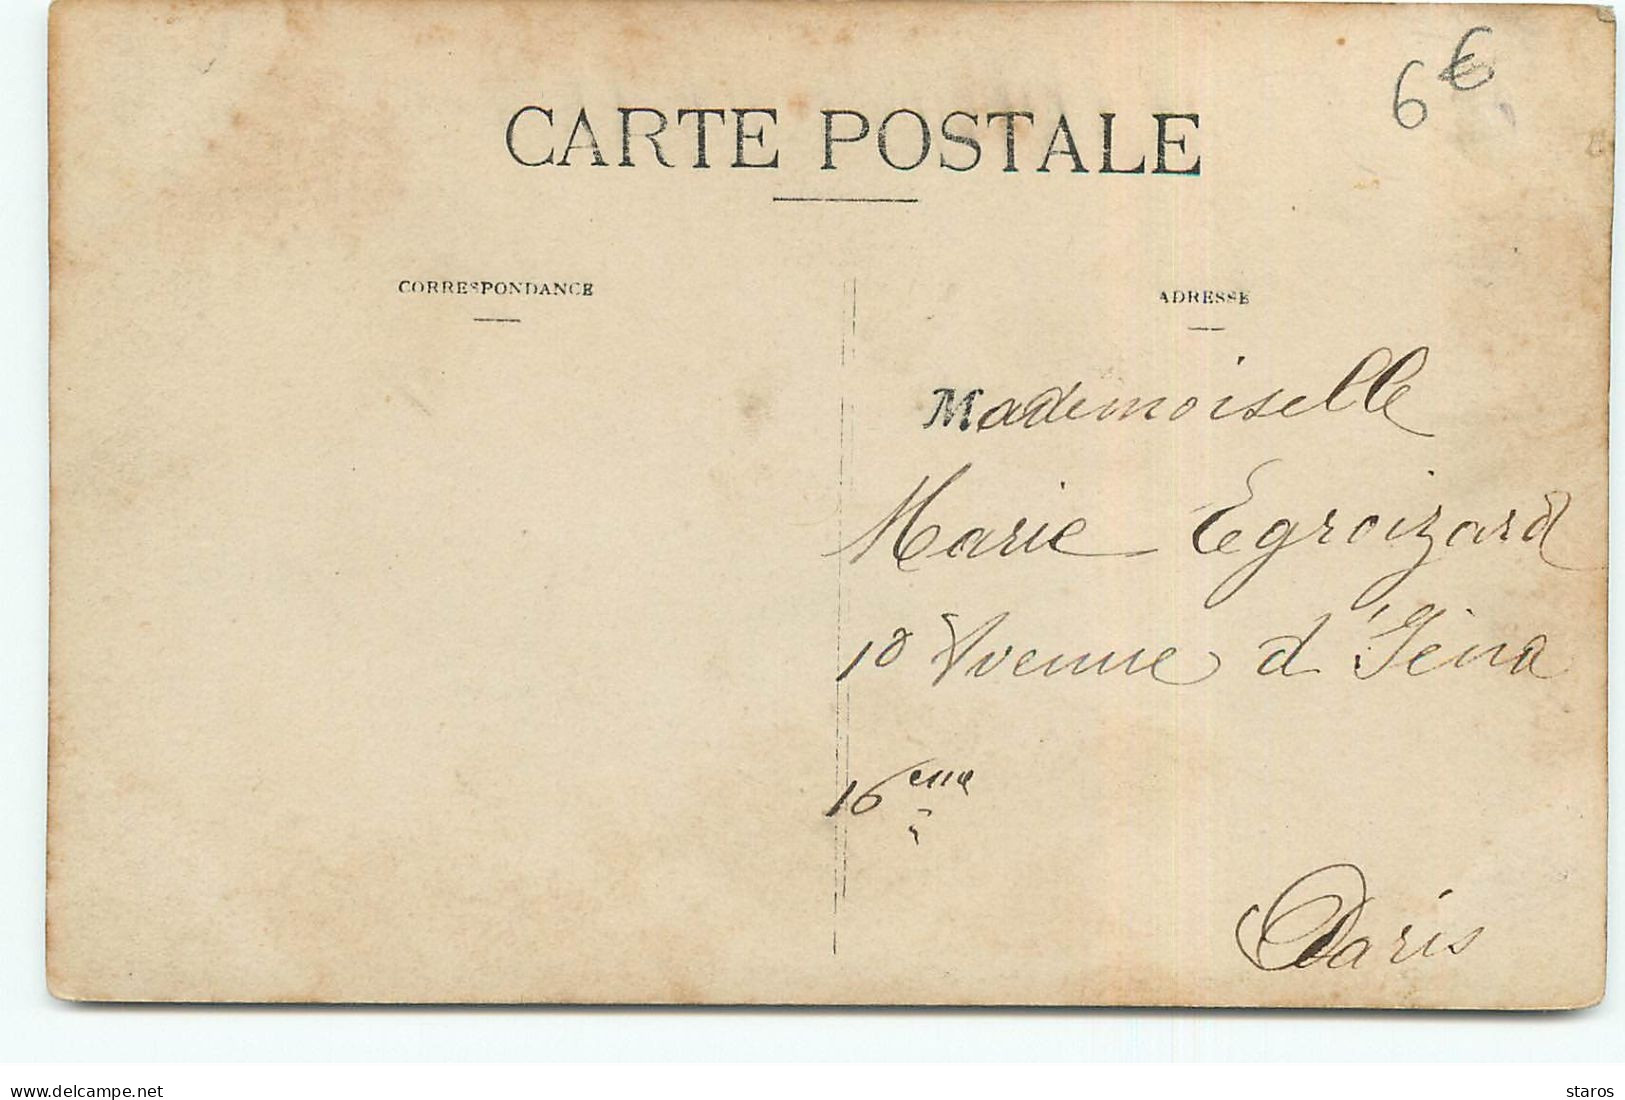 6 €
CARTE POSTALE
CORRESPONDANCE
ADRESSE
Mademoiselle
Marie Egroizard
10 Avenue d'Iéna
16eme
Paris
www.delcampe.net
staros